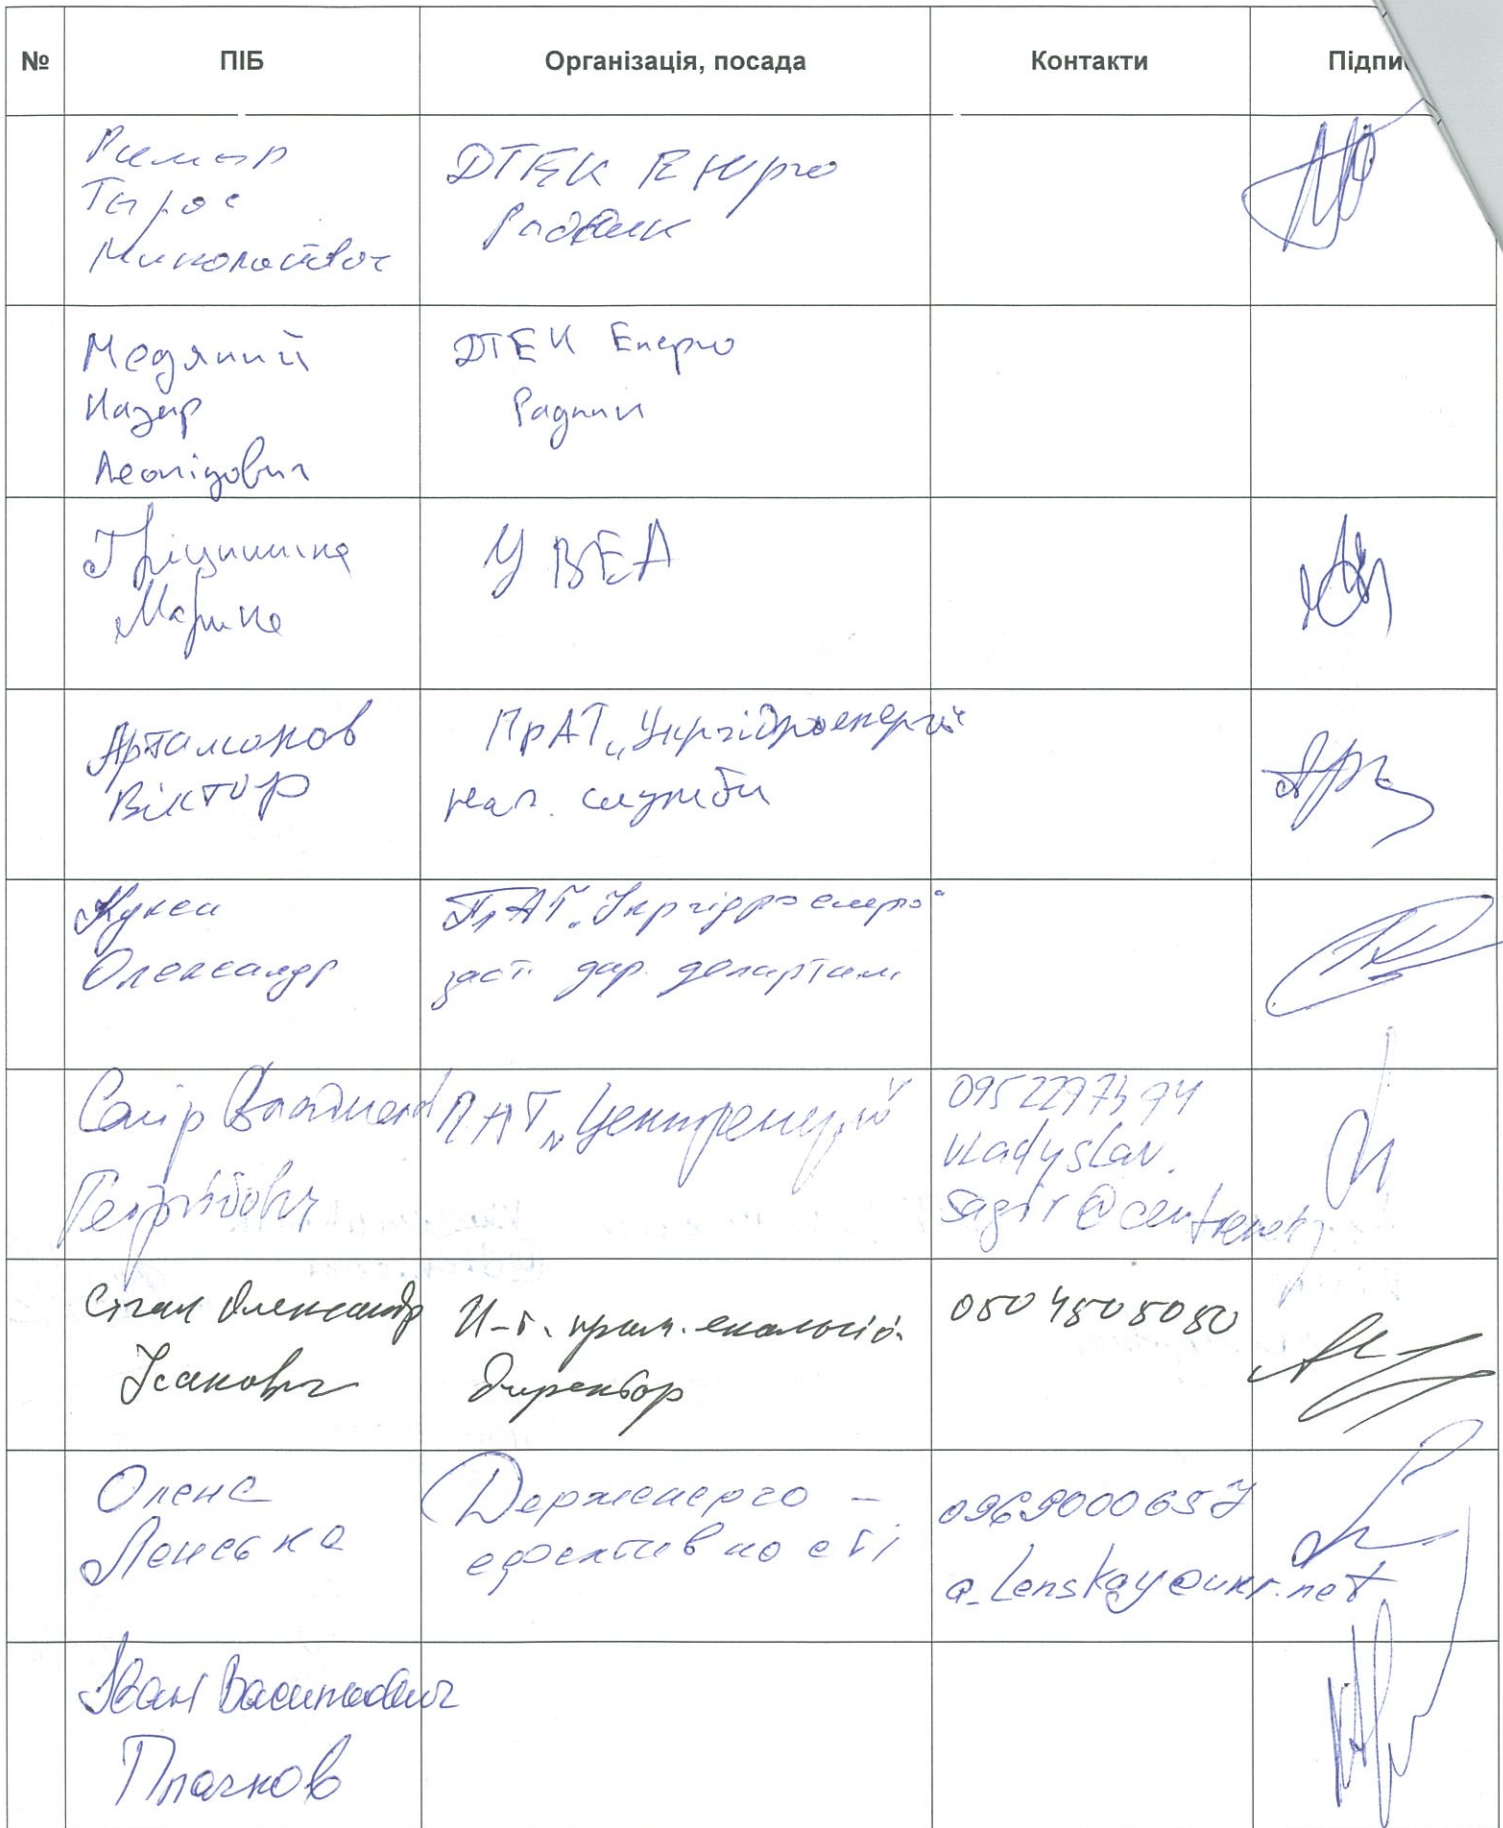 № ПІБ Організація, посада Контакти
Тарас
Миколайович
ДТЕК Енерго
Радник
Медяний
Назар
Леонідович
ДТЕК Енерго
Радник
Марина
УВЕА
Артамонов
Віктор
ПрАТ „Укргідроенерго“
нач. служби
Олександр
ПрАТ „Укргідроенерго“
заст. дир. департам.
Сагір Владислав
ПАТ „Центренерго“
vladyslav.
Сігал Олександр
Ісакович
І-т. пром. екології.
директор
050 4505050
Олена
Ленська
Держенерго –
ефективності
a_lenskay@ukr.net
Іван Васильович
Плачков